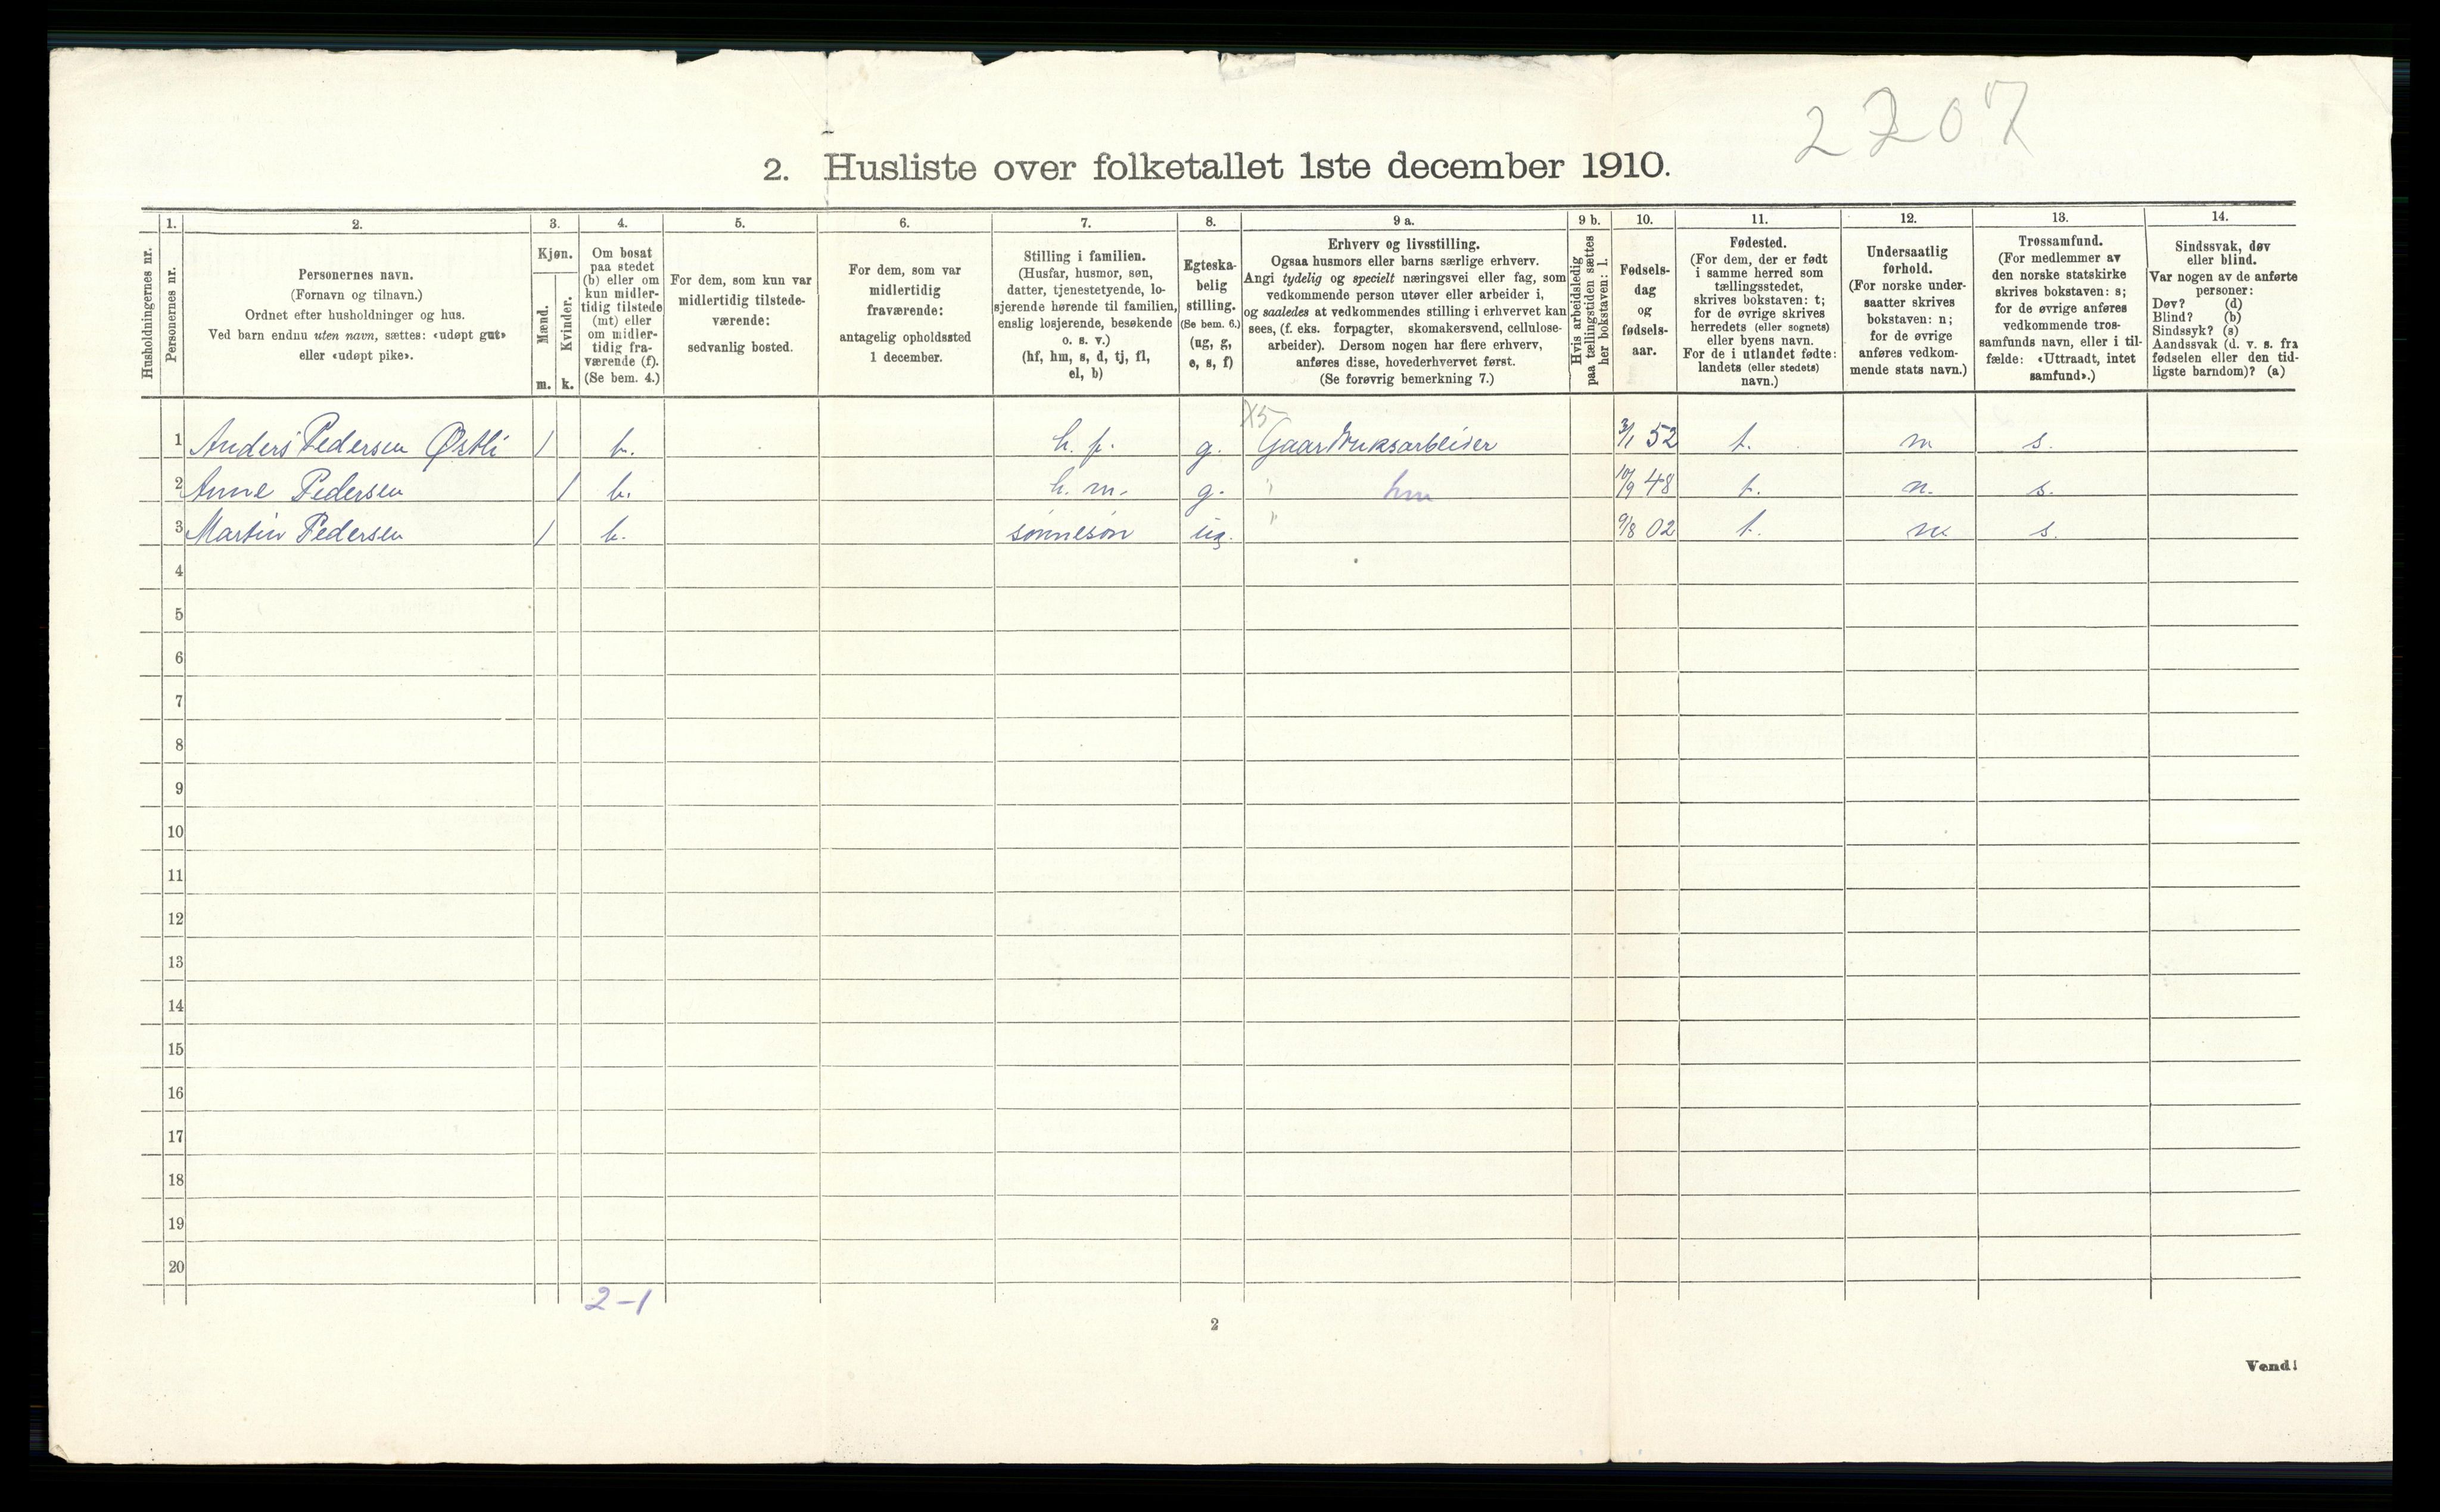 2207
2. Husliste over folketallet 1ste december 1910.
1. 2. 3. 4. 5. 6. 7. 8. 9 a. 9 b. 10. 11. 12. 13. 14.
Husholdningernes nr.
Personernes nr.
Personernes navn.
(Fornavn og tilnavn.)
Ordnet efter husholdninger og hus.
Ved barn endnu uten navn, sættes: «udøpt gut»
eller «udøpt pike».
Kjøn.
Mænd.
Kvinder.
m. k.
Om bosat
paa stedet
(b) eller om
kun midler-
tidig tilstede
(mt) eller
om midler-
tidig fra-
værende (f).
(Se bem. 4.)
For dem, som kun var
midlertidig tilstede-
værende:
sedvanlig bosted.
For dem, som var
midlertidig
fraværende:
antagelig opholdssted
1 december.
Stilling i familien.
(Husfar, husmor, søn,
datter, tjenestetyende, lo-
sjerende hørende til familien,
enslig losjerende, besøkende
o. s. v.)
(hf, hm, s, d, tj, fl,
el, b)
Egteska-
belig
stilling.
(Se bem. 6.)
(ug, g,
e, s, f)
Erhverv og livsstilling.
Ogsaa husmors eller barns særlige erhverv.
Angi tydelig og specielt næringsvei eller fag, som
vedkommende person utøver eller arbeider i,
og saaledes at vedkommendes stilling i erhvervet kan
sees, (f. eks. forpagter, skomakersvend, cellulose-
arbeider). Dersom nogen har flere erhverv,
anføres disse, hovederhvervet først.
(Se forøvrig bemerkning 7.)
Hvis arbeidsledig
paa tællingstiden sættes
her bokstaven: l.
Fødsels-
dag
og
fødsels-
aar.
Fødested.
(For dem, der er født
i samme herred som
tællingsstedet,
skrives bokstaven: t;
for de øvrige skrives
herredets (eller sognets)
eller byens navn.
For de i utlandet fødte:
landets (eller stedets)
navn.)
Undersaatlig
forhold.
(For norske under-
saatter skrives
bokstaven: n;
for de øvrige
anføres vedkom-
mende stats navn.)
Trossamfund.
(For medlemmer av
den norske statskirke
skrives bokstaven: s;
for de øvrige anføres
vedkommende tros-
samfunds navn, eller i til-
fælde: «Uttraadt, intet
samfund».)
Sindssvak, døv
eller blind.
Var nogen av de anførte
personer:
Døv? (d)
Blind? (b)
Sindssyk? (s)
Aandssvak (d. v. s. fra
fødselen eller den tid-
ligste barndom)? (a)
X5
1 Anders Pedersen Østli 1 b. h. f. g. Gaardbruksarbeider 3/1 52 t. n s.
2 Anne Pedersen 1 b. h. m. g. " hm 10/9 48 t. n. s.
3 Martin Pedersen 1 b. sønnesøn ug. " 9/8 02 t. n s.
4
5
6
7
8
9
10
11
12
13
14
15
16
17
18
19
20
2-1
2
Vend!